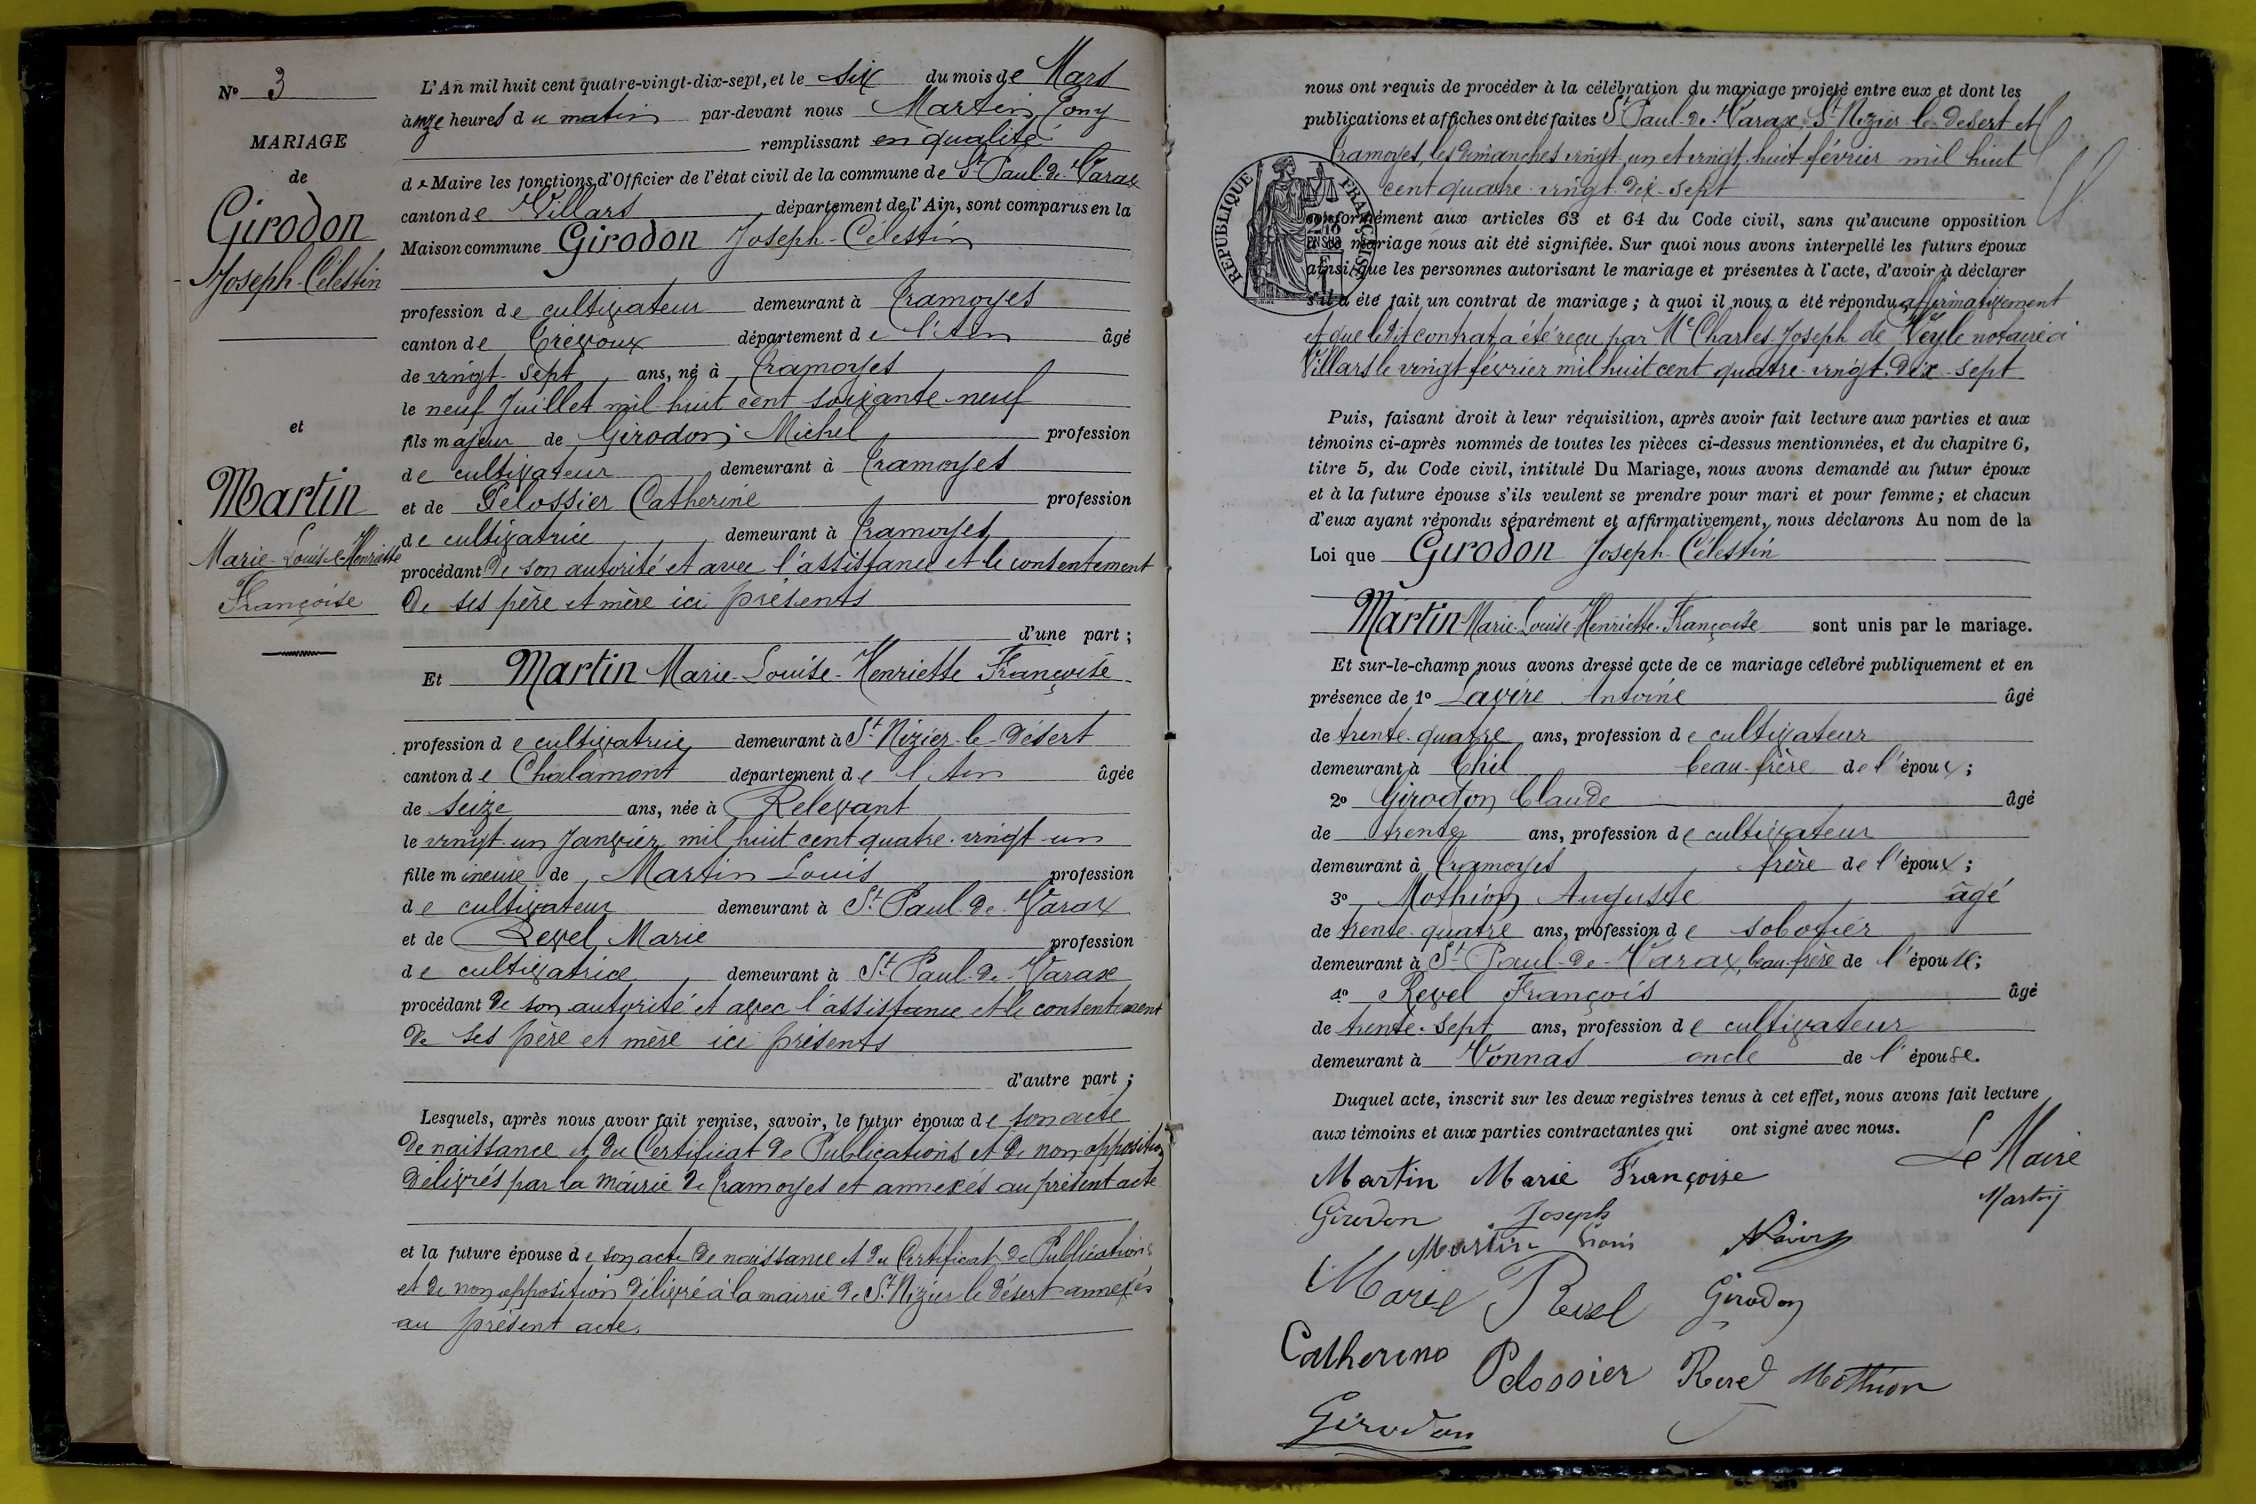 N° 3
MARIAGE
de
Girodon
Joseph-Célestin
et
Martin
Marie-Louise-Henriette
Françoise
L'An mil huit cent quatre-vingt-dix-sept, et le six du mois de Mars
à onze heures du matin par-devant nous Martin, Tony
remplissant en qualité
de Maire les fonctions d'Officier de l'état civil de la commune de St Paul-de-Varax
canton de Villars département de l'Ain, sont comparus en la
Maison commune Girodon Joseph-Célestin
profession de cultivateur demeurant à Cramoyes
canton de Trévoux département de l'Ain âgé
de vingt-sept ans, né à Cramoyes
le neuf Juillet mil huit cent soixante-neuf
fils majeur de Girodon Michel profession
de cultivateur demeurant à Cramoyes
et de Pelossier Catherine profession
de cultivatrice demeurant à Cramoyes
procédant de son autorité et avec l'assistance et le consentement
de ses père et mère ici présents
d'une part ;
Et Martin Marie-Louise-Henriette Françoise
profession de cultivatrice demeurant à St Nizier-le-Désert
canton de Chalamont département de l'Ain âgée
de seize ans, née à Relevant
le vingt-un Janvier mil huit cent quatre-vingt-un
fille mineure de Martin Louis profession
de cultivateur demeurant à St Paul-de-Varax
et de Revel Marie profession
de cultivatrice demeurant à St Paul-de-Varax
procédant de son autorité et avec l'assistance et le consentement
de ses père et mère ici présents
d'autre part ;
Lesquels, après nous avoir fait remise, savoir, le futur époux de son acte
de naissance et du Certificat de Publications et de non opposition
délivrés par la mairie de Cramoyes et annexés au présent acte
et la future épouse de son acte de naissance et du Certificat de Publications
et de non opposition délivré à la mairie de St Nizier le désert annexés
au présent acte.
nous ont requis de procéder à la célébration du mariage projeté entre eux et dont les
publications et affiches ont été faites St Paul-de-Varax, St Nizier le désert et
Cramoyes, les dimanches vingt-un et vingt-huit février mil huit
cent quatre-vingt-dix-sept
RÉPUBLIQUE FRANÇAISE
conformément aux articles 63 et 64 du Code civil, sans qu'aucune opposition
à ce mariage nous ait été signifiée. Sur quoi nous avons interpellé les futurs époux
ainsi que les personnes autorisant le mariage et présentes à l'acte, d'avoir à déclarer
s'il a été fait un contrat de mariage ; à quoi il nous a été répondu affirmativement
et que ledit contrat a été reçu par Me Charles-Joseph de Veyle notaire à
Villars le vingt février mil huit cent quatre-vingt-dix-sept
Puis, faisant droit à leur réquisition, après avoir fait lecture aux parties et aux
témoins ci-après nommés de toutes les pièces ci-dessus mentionnées, et du chapitre 6,
titre 5, du Code civil, intitulé Du Mariage, nous avons demandé au futur époux
et à la future épouse s'ils veulent se prendre pour mari et pour femme ; et chacun
d'eux ayant répondu séparément et affirmativement, nous déclarons Au nom de la
Loi que Girodon Joseph-Célestin
Martin Marie-Louise-Henriette-Françoise sont unis par le mariage.
Et sur-le-champ nous avons dressé acte de ce mariage célébré publiquement et en
présence de 1° Lavire Antoine âgé
de trente-quatre ans, profession de cultivateur
demeurant à Thil beau-frère de l'époux ;
2° Girodon Claude âgé
de trente ans, profession de cultivateur
demeurant à Cramoyes frère de l'époux ;
3° Mothion Auguste âgé
de trente-quatre ans, profession de sabotier
demeurant à St Paul-de-Varax, beau-frère de l'épouse;
4° Revel François âgé
de trente-sept ans, profession de cultivateur
demeurant à Vonnas oncle de l'épouse.
Duquel acte, inscrit sur les deux registres tenus à cet effet, nous avons fait lecture
aux témoins et aux parties contractantes qui ont signé avec nous.
Le Maire
Martin Marie Françoise
Martin
Girodon Joseph
Martin Louis Lavire
Marie Revel Girodon
Catherine Pelossier Revel Mothion
Girodon